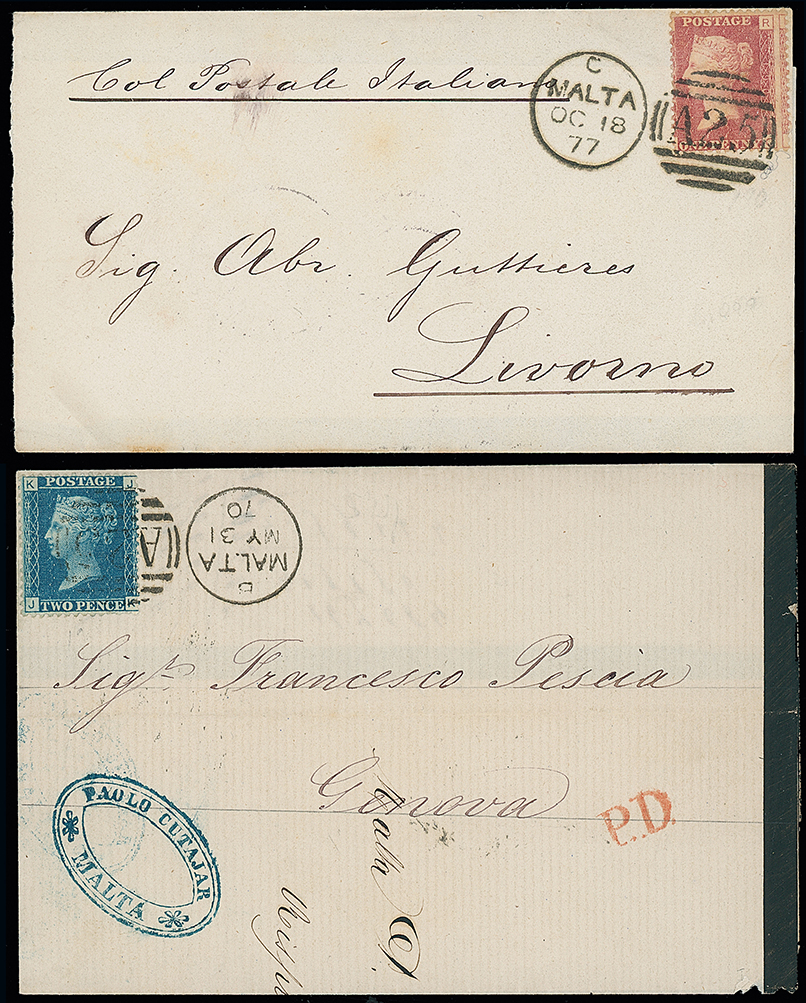 POSTAGE
R
Col Postale Italiano
C
MALTA
OC 18
77
A25
ONE PENNY
Sig. Abr. Guttieres
Livorno
K POSTAGE J
J TWO PENCE K
A
B
MALTA
MY 31
70
Sigr. Francesco Pescia
Genova
P.D.
PAOLO CUTAJAR
MALTA
Malta